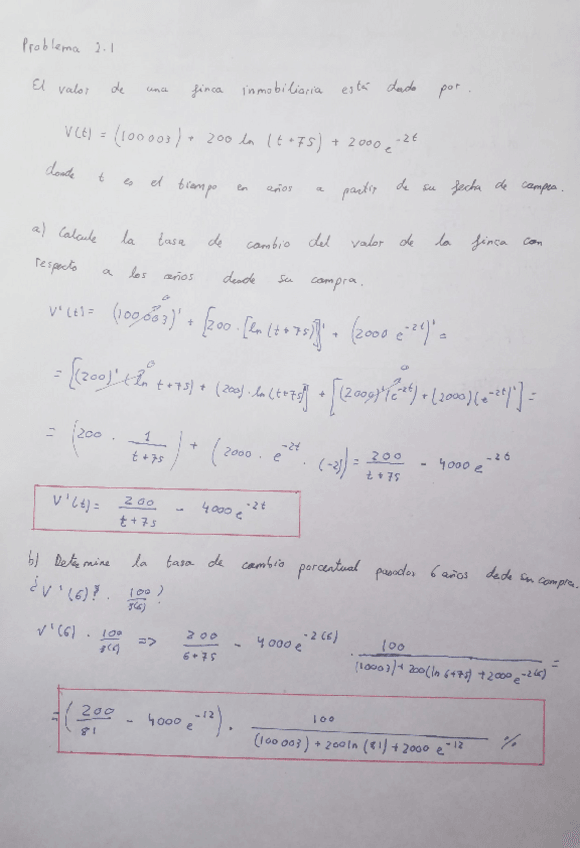 Problema 2.1
El valor de una finca inmobiliaria está dado por.
V(t) = (100 003) + 200 ln (t+75) + 2000 e^-2t
donde t es el tiempo en años a partir de su fecha de compra.
a) Calcule la tasa de cambio del valor de la finca con
respecto a los años desde su compra.
V'(t) = (100 003)' + [200 · [ln (t+75)]]' + (2000 e^-2t)' =
= [(200)' · (ln t+75) + (200) · ln (t+75)'] + [(2000)' (e^-2t) + (2000) (e^-2t)'] =
= (200 · 1/(t+75)) + (2000 · e^-2t · (-2)) = 200/(t+75) - 4000 e^-2t
V'(t) = 200/(t+75) - 4000 e^-2t
b) Determine la tasa de cambio porcentual pasados 6 años desde su compra.
¿V'(6)? · 100/
V'(6) · 100/ => 200/(6+75) - 4000 e^-2(6) · 100/((10003) + 200 (ln 6+75) + 2000 e^-2(6)) =
= (200/81 - 4000 e^-12) · 100/((100 003) + 200 ln (81) + 2000 e^-12) %